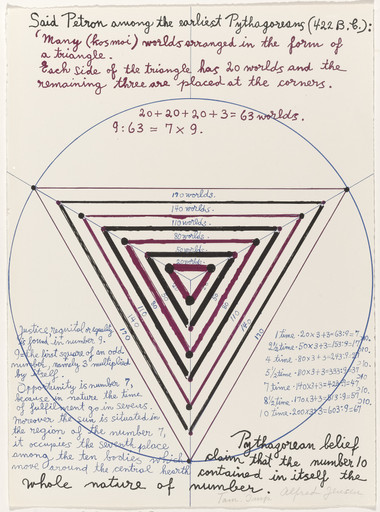 Said Petron among the earliest Pythagoreans (422 B.C.):
"Many (kosmoi) worlds arranged in the form of
a triangle.
Each side of the triangle has 20 worlds and the
remaining three are placed at the corners.
20+20+20+3=63 worlds.
9:63 = 7×9.
170 worlds.
140 worlds.
110 worlds.
80 worlds.
50 worlds.
20 worlds.
Justice, requital or equality
is found in number 9.
9 is the first square of an odd
number, namely 3 multiplied
by itself.
Opportunity is number 7,
because in nature the time
of fulfilment go in sevens.
Moreover the sun is situated in
the region of the number 7,
it occupies the seventh place
among the ten bodies which
move around the central hearth
1 time · 20×3+3=63:9=7
4 time · 80×3+3=243:9=27
7 time · 140×3+3=423:9=47
10 time · 200×3+3=603:9=67
Pythagorean belief
claim that the number 10
contained in itself the
whole nature of number.
Alfred Jensen